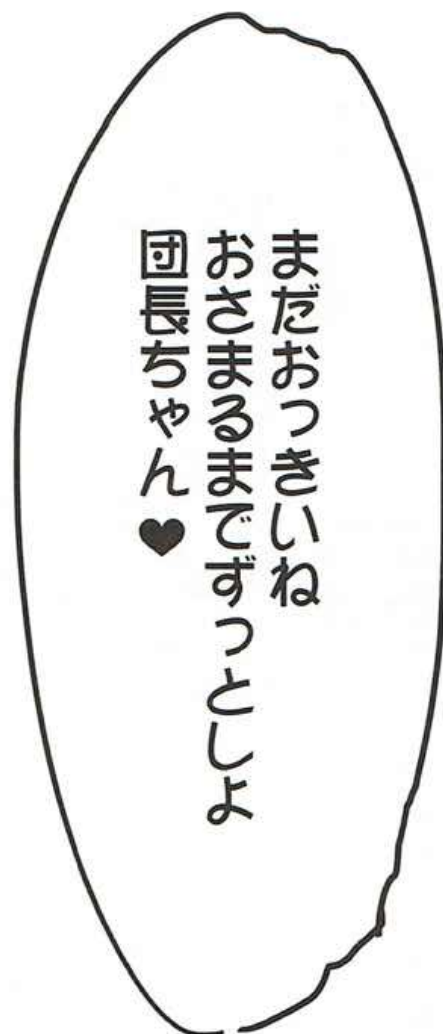 まだおっきいね
おさまるまでずっとしよ
団長ちゃん♥